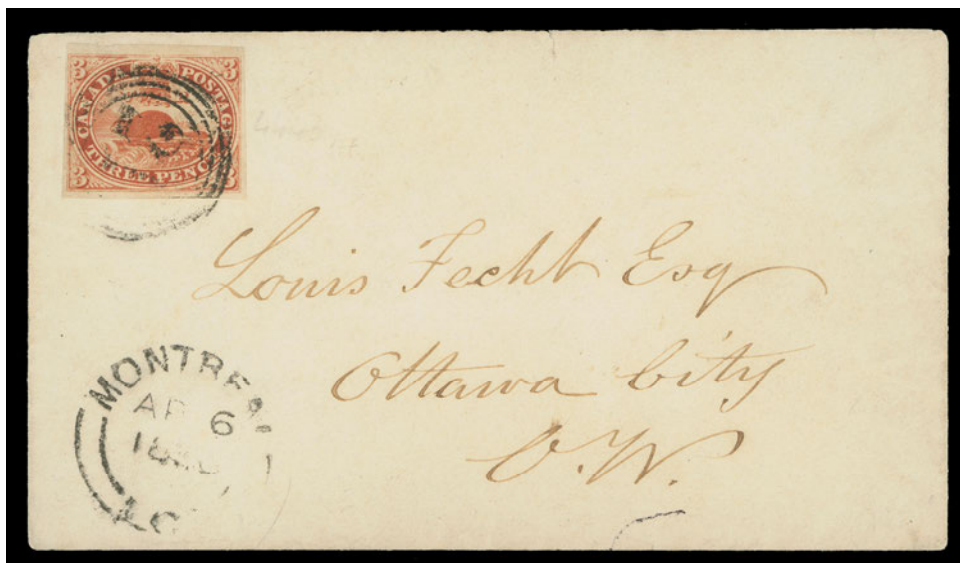 3 3
CANADA POSTAGE
THREE PENCE
3 3
Louis Fecht Esq
Ottawa City
C.W.
MONTREAL
AP 6